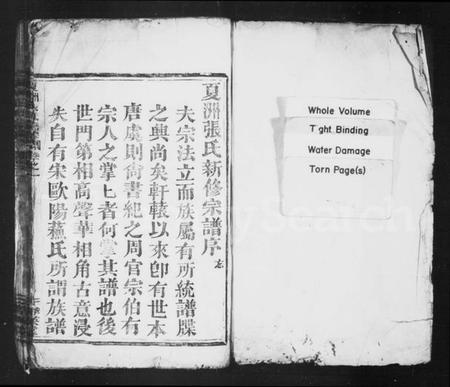 夏洲張氏新修宗譜序
夫宗法立而族屬有所統譜牒
之興尚矣軒轅以來卽有世本
唐虞則尚書紀之周官宗伯有
宗人之掌七者何掌其譜也後
世門第相高聲華相角古意浸
失自有宋歐陽蘇氏所謂族譜
Whole Volume
T ght Binding
Water Damage
Torn Page(s)